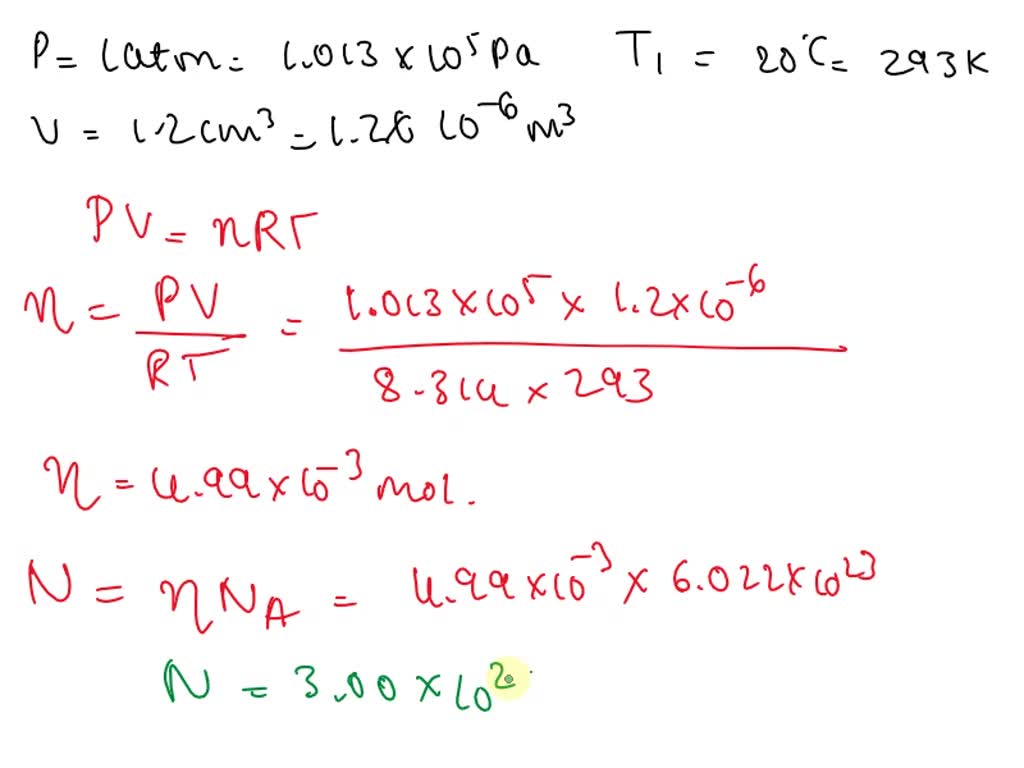 P = 1atm = 1.013 × 10⁵ Pa T₁ = 20°C = 293K
V = 1.2 cm³ = 1.2× 10⁻⁶ m³
PV = nRT
n = PV/RT = 1.013 × 10⁵ × 1.2 × 10⁻⁶ / 8.314 × 293
n = 4.99 × 10⁻³ mol.
N = nN_A = 4.99 × 10⁻³ × 6.022 × 10²³
N = 3.00 × 10²